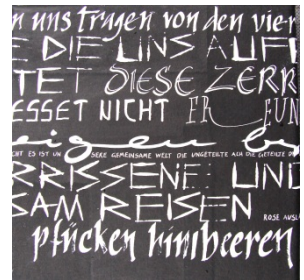 n uns tragen von den vier
E DIE UNS AUF
TET DIESE ZERR
ESSET NICHT ER EUN
eigen
CHT ES IST UN SERE GEMEINSAME WELT DIE UNGETEILTE ACH DIE GETEILTE D
RRISSENE UND
SAM REISEN ROSE AUSL
pflücken himbeeren